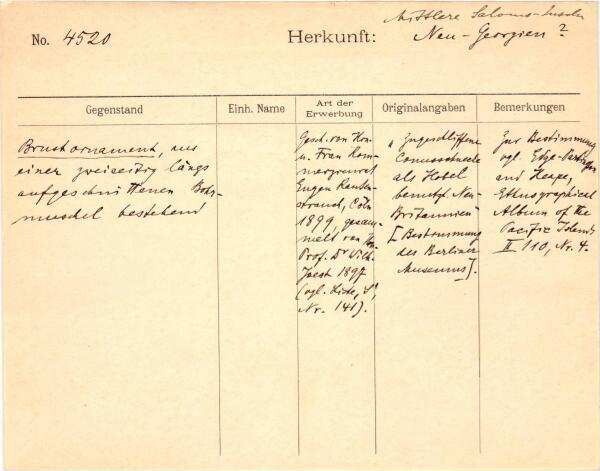 No. 4520
Herkunft:
Mittlere Salomo-Inseln
Neu-Georgien?
Gegenstand
Einh. Name
Art der Erwerbung
Originalangaben
Bemerkungen
Brustornament, aus
einer zweiseitig längs
aufgeschnittenen Bohr-
muschel bestehend
Gesch. von Herrn
u. Frau Kom-
merzienrat
Eugen Rauten-
strauch, Cöln
1899, gesam-
melt von
Prof. Dr Wilh.
Joest 1897
(vgl. Liste,
Nr. 141).
„Zugeschliffene
Conusschnecke
als Hobel
benutzt Neu-
Britannien"
[Bestimmung
des Berliner
Museums].
Zur Bestimmung
vgl. Edge-Partington
and Heape,
Ethnographical
Album of the
Pacific Islands
II 110, Nr. 4.